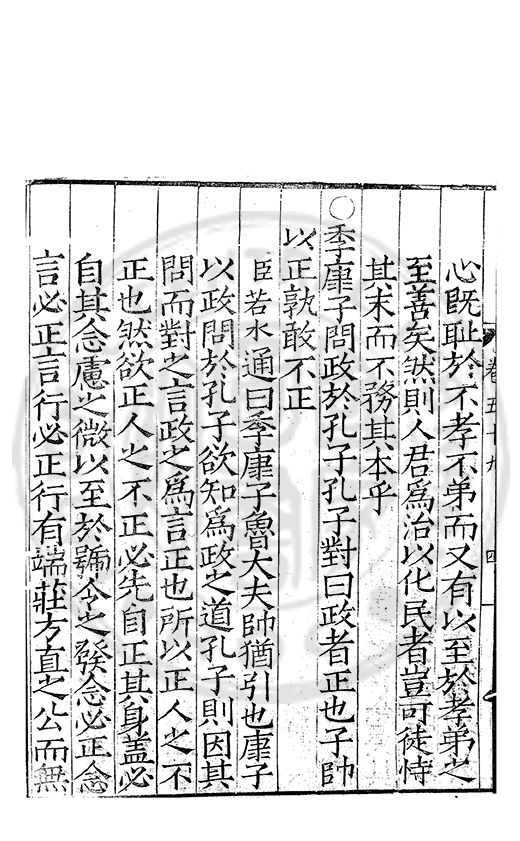 卷五十九 四
心既耻於不孝不弟而又有以至於孝弟之
至善矣然則人君爲治以化民者豈可徒恃
其末而不務其本乎
○季康子問政於孔子孔子對曰政者正也子帥
以正孰敢不正
臣若水通曰季康子魯大夫帥猶引也康子
以政問於孔子欲知爲政之道孔子則因其
問而對之言政之爲言正也所以正人之不
正也然欲正人之不正必先自正其身蓋必
自其念慮之微以至於號令之發念必正念
言必正言行必正行有端莊方直之公而無